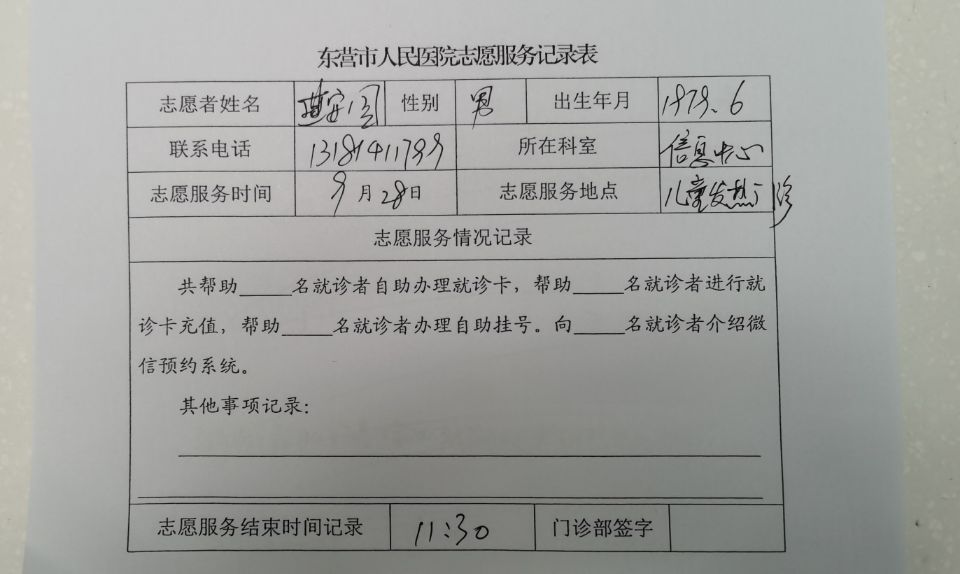 东营市人民医院志愿服务记录表
志愿者姓名 性别 男 出生年月 1979.6
联系电话 所在科室 信息中心
志愿服务时间 9月28日 志愿服务地点 儿童发热门诊
志愿服务情况记录
共帮助_____名就诊者自助办理就诊卡，帮助_____名就诊者进行就
诊卡充值，帮助_____名就诊者办理自助挂号。向_____名就诊者介绍微
信预约系统。
其他事项记录：
志愿服务结束时间记录 11:30 门诊部签字